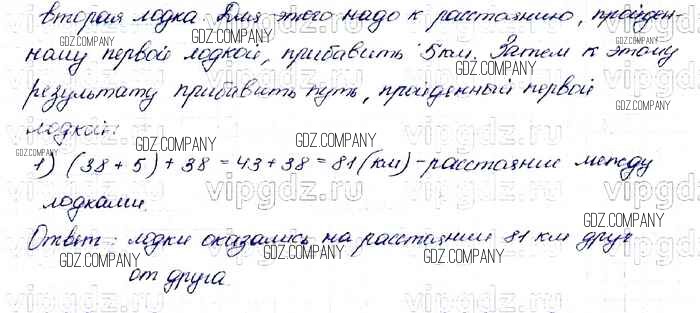 вторая лодка. Для этого надо к расстоянию, пройден-
ному первой лодкой, прибавить 5км. Затем к этому
результату прибавить путь, пройденный первой
лодкой:
1) (38 + 5) + 38 = 43 + 38 = 81 (км) - расстояние между
лодками.
Ответ: лодки оказались на расстоянии 81 км друг
от друга.
GDZ.COMPANY
GDZ.COMPANY
GDZ.COMPANY
GDZ.COMPANY
GDZ.COMPANY
GDZ.COMPANY
GDZ.COMPANY
GDZ.COMPANY
GDZ.COMPANY
GDZ.COMPANY
GDZ.COMPANY
GDZ.COMPANY
vipgdz.ru
vipgdz.ru
vipgdz.ru
vipgdz.ru